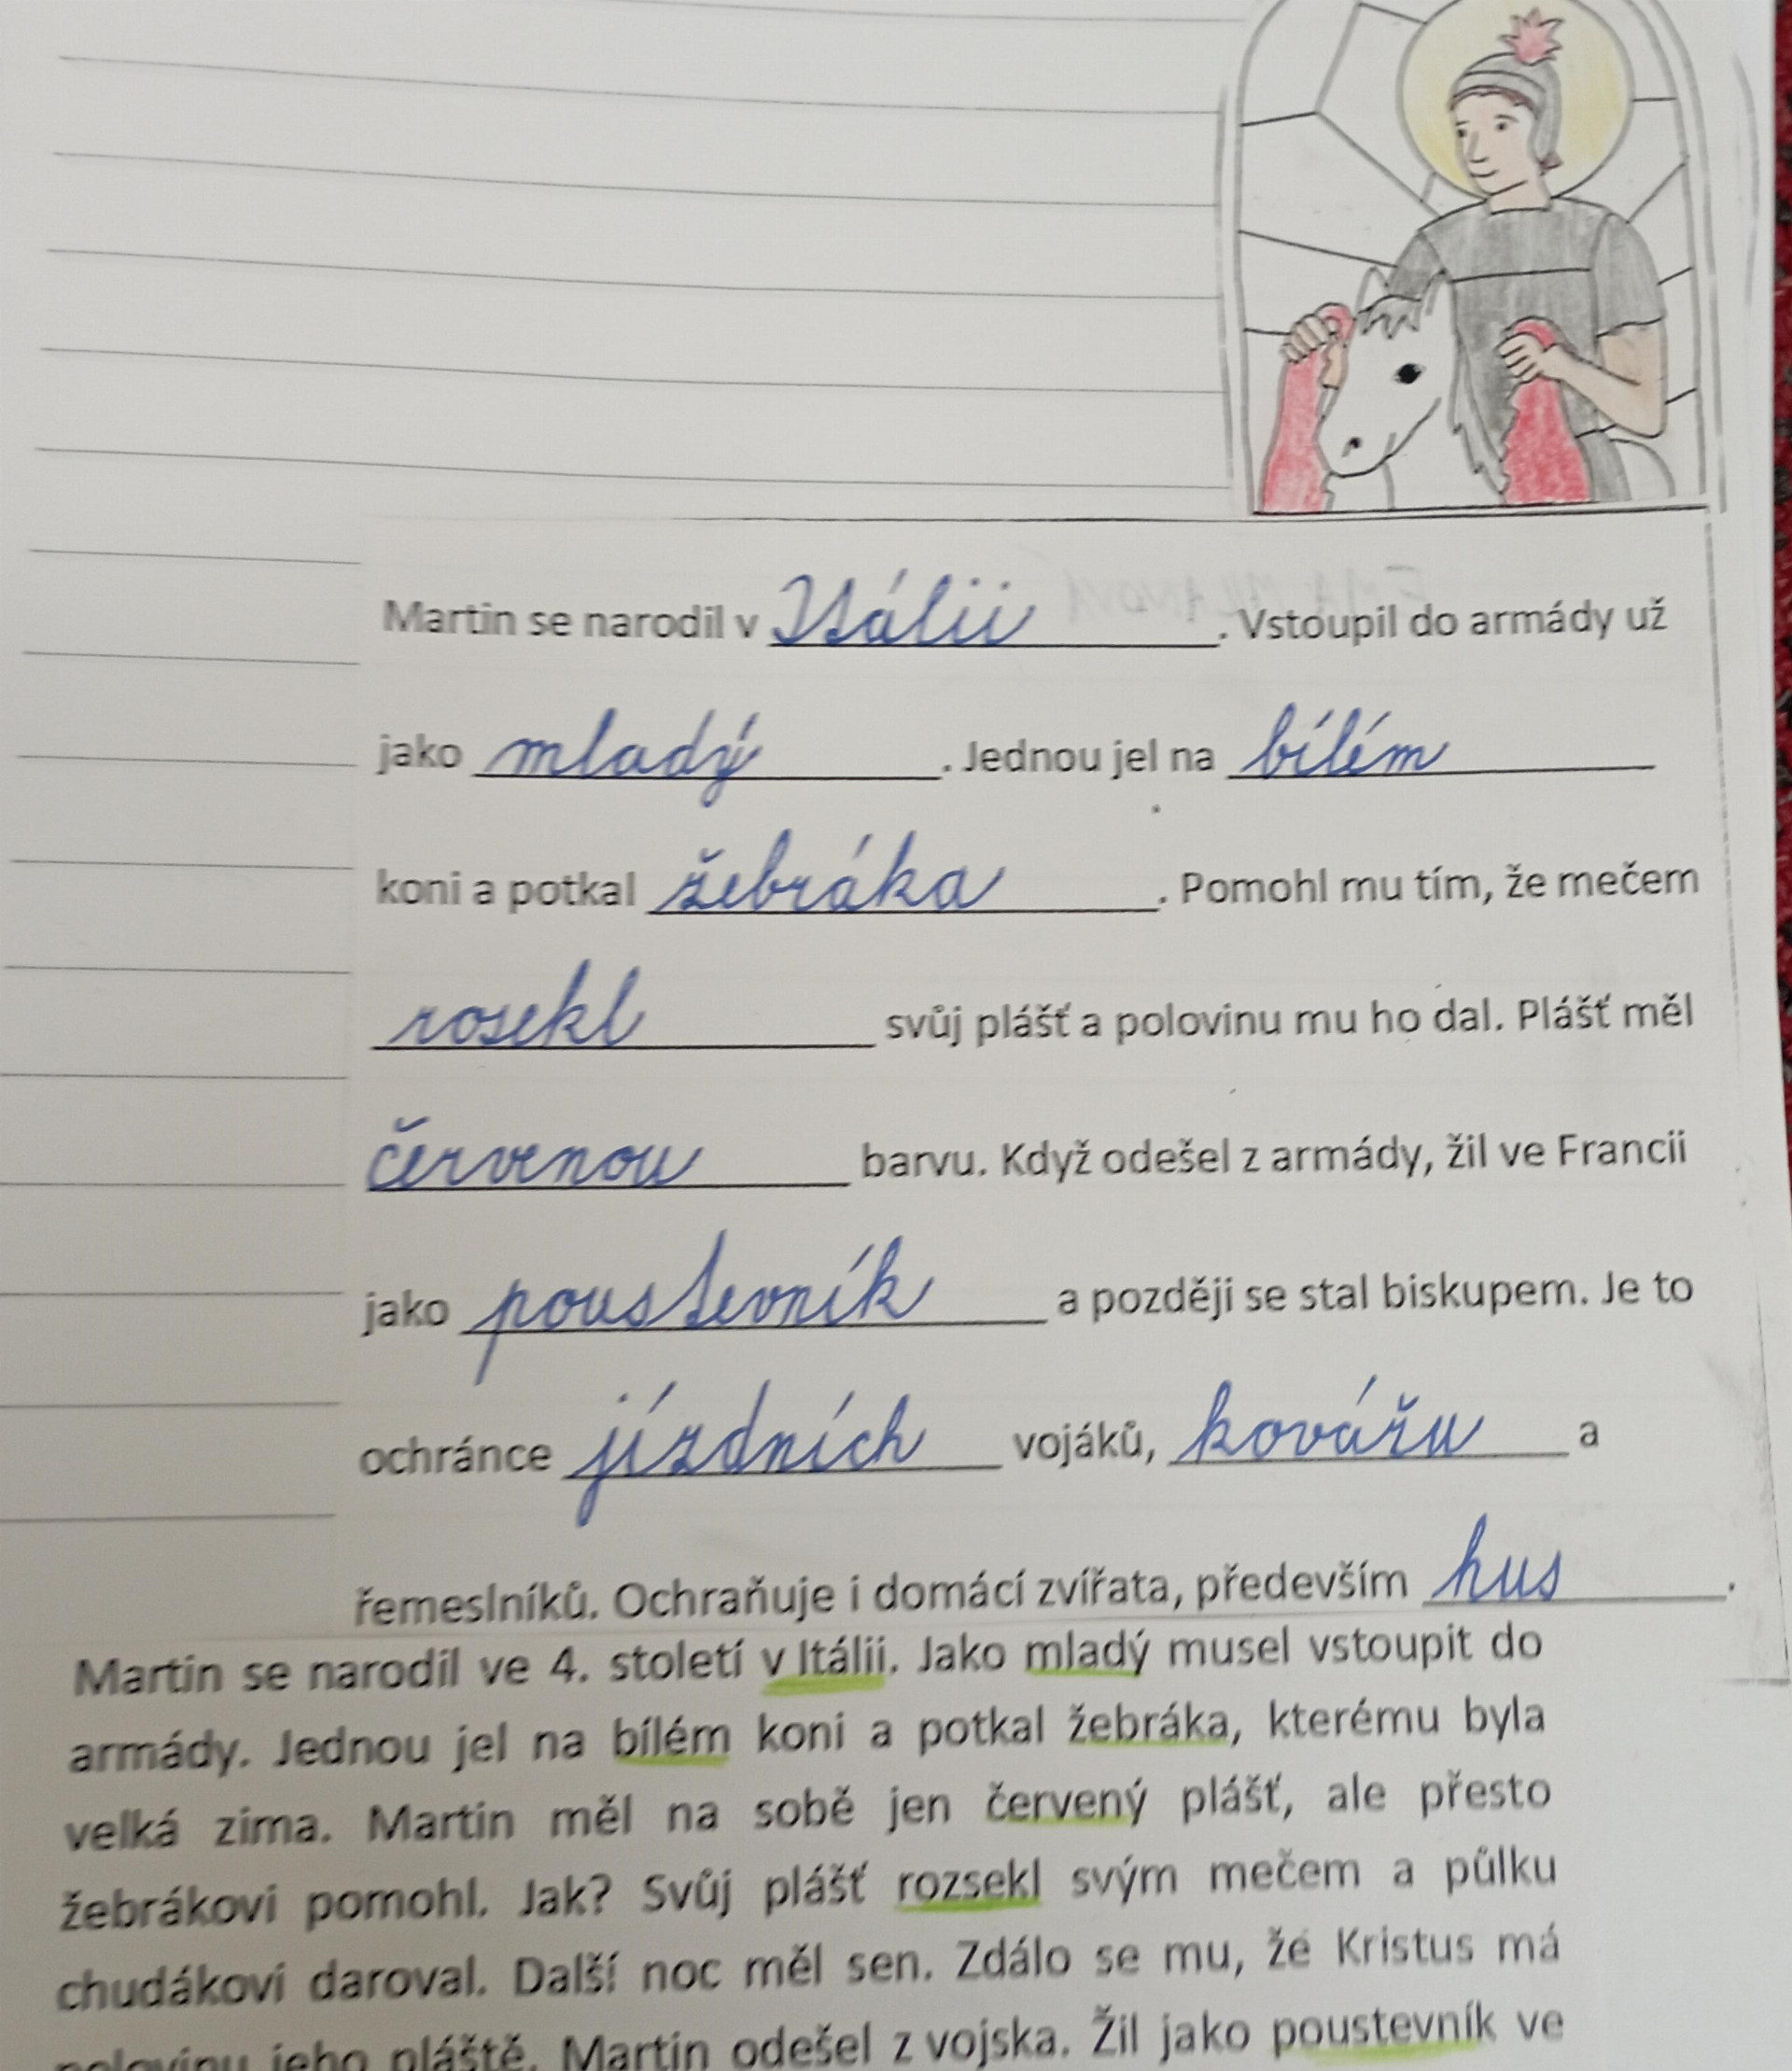 Martin se narodil v Itálii. Vstoupil do armády už
jako mladý. Jednou jel na bílém
koni a potkal žebráka. Pomohl mu tím, že mečem
rosekl svůj plášť a polovinu mu ho dal. Plášť měl
červenou barvu. Když odešel z armády, žil ve Francii
jako poustevník a později se stal biskupem. Je to
ochránce jízdních vojáků, kovářu a
řemeslníků. Ochraňuje i domácí zvířata, především hus.
Martin se narodil ve 4. století v Itálii. Jako mladý musel vstoupit do
armády. Jednou jel na bílém koni a potkal žebráka, kterému byla
velká zima. Martin měl na sobě jen červený plášť, ale přesto
žebrákovi pomohl. Jak? Svůj plášť rozsekl svým mečem a půlku
chudákovi daroval. Další noc měl sen. Zdálo se mu, že Kristus má
polovinu jeho pláště. Martin odešel z vojska. Žil jako poustevník ve